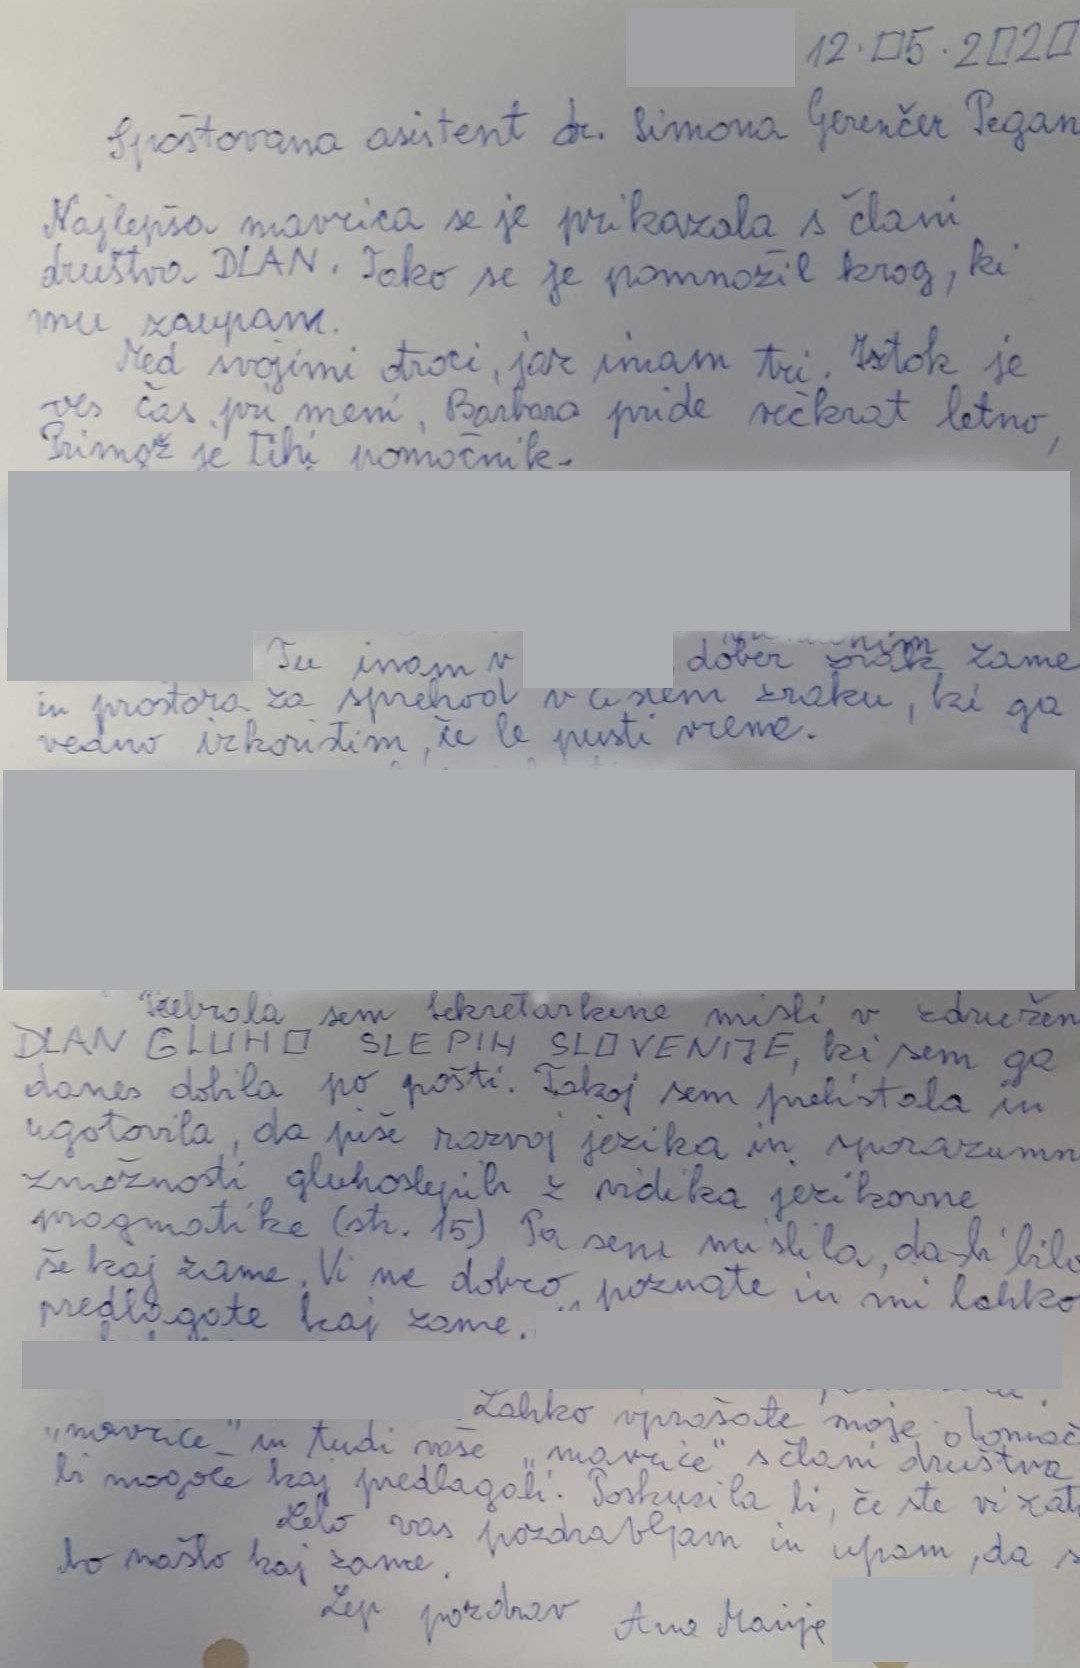 12.05.2020
Spoštovana asistent dr. Simona Gerenčer Pegan
Najlepša mavrica se je prikazala s člani
društva DLAN. Tako se je pomnožil krog, ki
mu zaupam.
Med svojimi otroci, jaz imam tri. Iztok je
ves čas pri meni, Barbara pride večkrat letno,
Primož je tihi pomočnik.
Tu imam v dober zrak zame
in prostora za sprehod v čistem zraku, ki ga
vedno izkoristim, če le pusti vreme.
sem sekretarkine misli v združen
DLAN GLUHO SLEPIH SLOVENIJE, ki sem ga
danes dobila po pošti. Takoj sem prelistala in
ugotovila, da piše razvoj jezika in sporazumn
zmožnosti gluhoslepih z vidika jezikovne
pragmatike (str. 15) Pa sem mislila, da bi bilo
še kaj zame. Vi me dobro poznate in mi lahko
predlagate kaj zame.
Lahko vprašate moje
"mavrice" in tudi vaše "mavrice" s člani društva
bi mogoče kaj predlagali. Poskusila bi, če ste vi
Lepo vas pozdravljam in upam, da s
bo našlo kaj zame.
Lep pozdrav Ana Marija